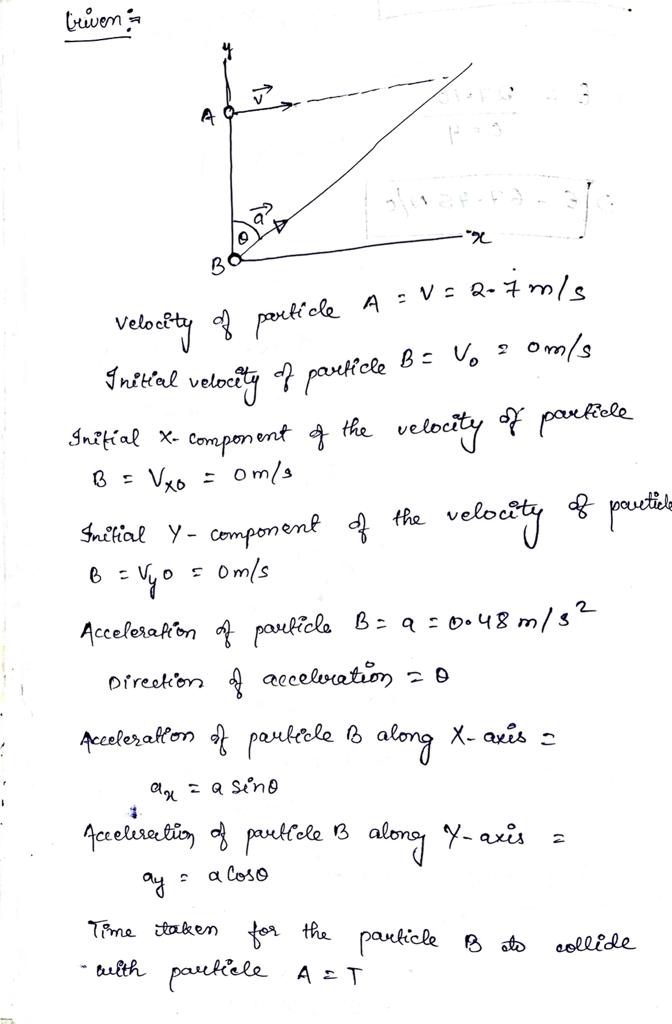 Given :-
y
A
v
a
θ
B
x
Velocity of particle A = V = 2.7 m/s
Initial velocity of particle B = V₀ = 0 m/s
Initial X-component of the velocity of particle
B = Vx₀ = 0 m/s
Initial Y-component of the velocity of particle
B = Vy₀ = 0 m/s
Acceleration of particle B = a = 0.48 m/s²
Direction of acceleration = θ
Acceleration of particle B along X-axis =
ax = a sinθ
Acceleration of particle B along Y-axis =
ay = a cosθ
Time taken for the particle B to collide
with particle A = T